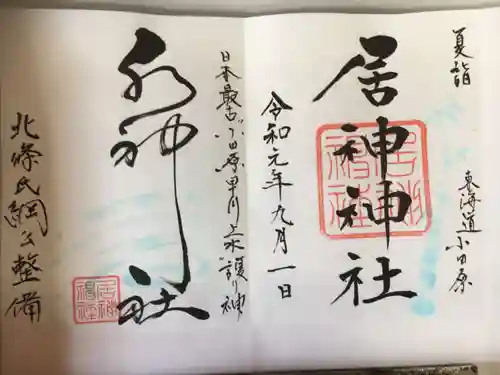 夏詣
居神神社
東海道小田原
令和元年九月一日
日本最古小田原早川上水護り神
水神社
北條氏綱公整備